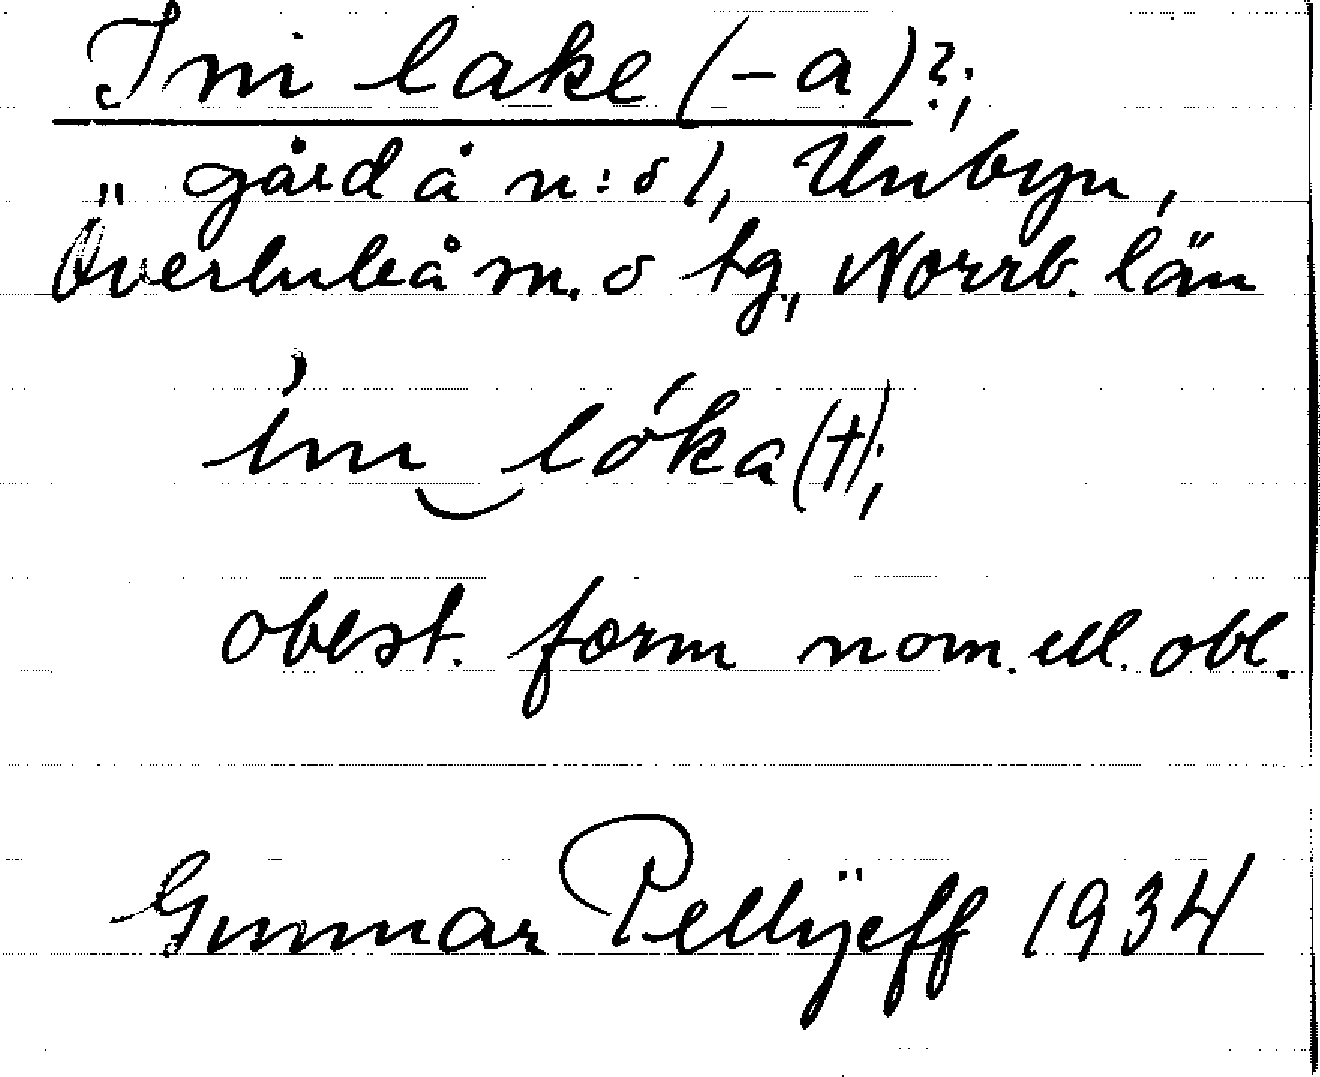 Ini lake (-a)?;
gård å n:o 1, Unbyn,
Överluleå sn. o tg., Norrb. län
lóka(t);
obest. form nom. ell. obl.
Gunnar Pellijeff 1934